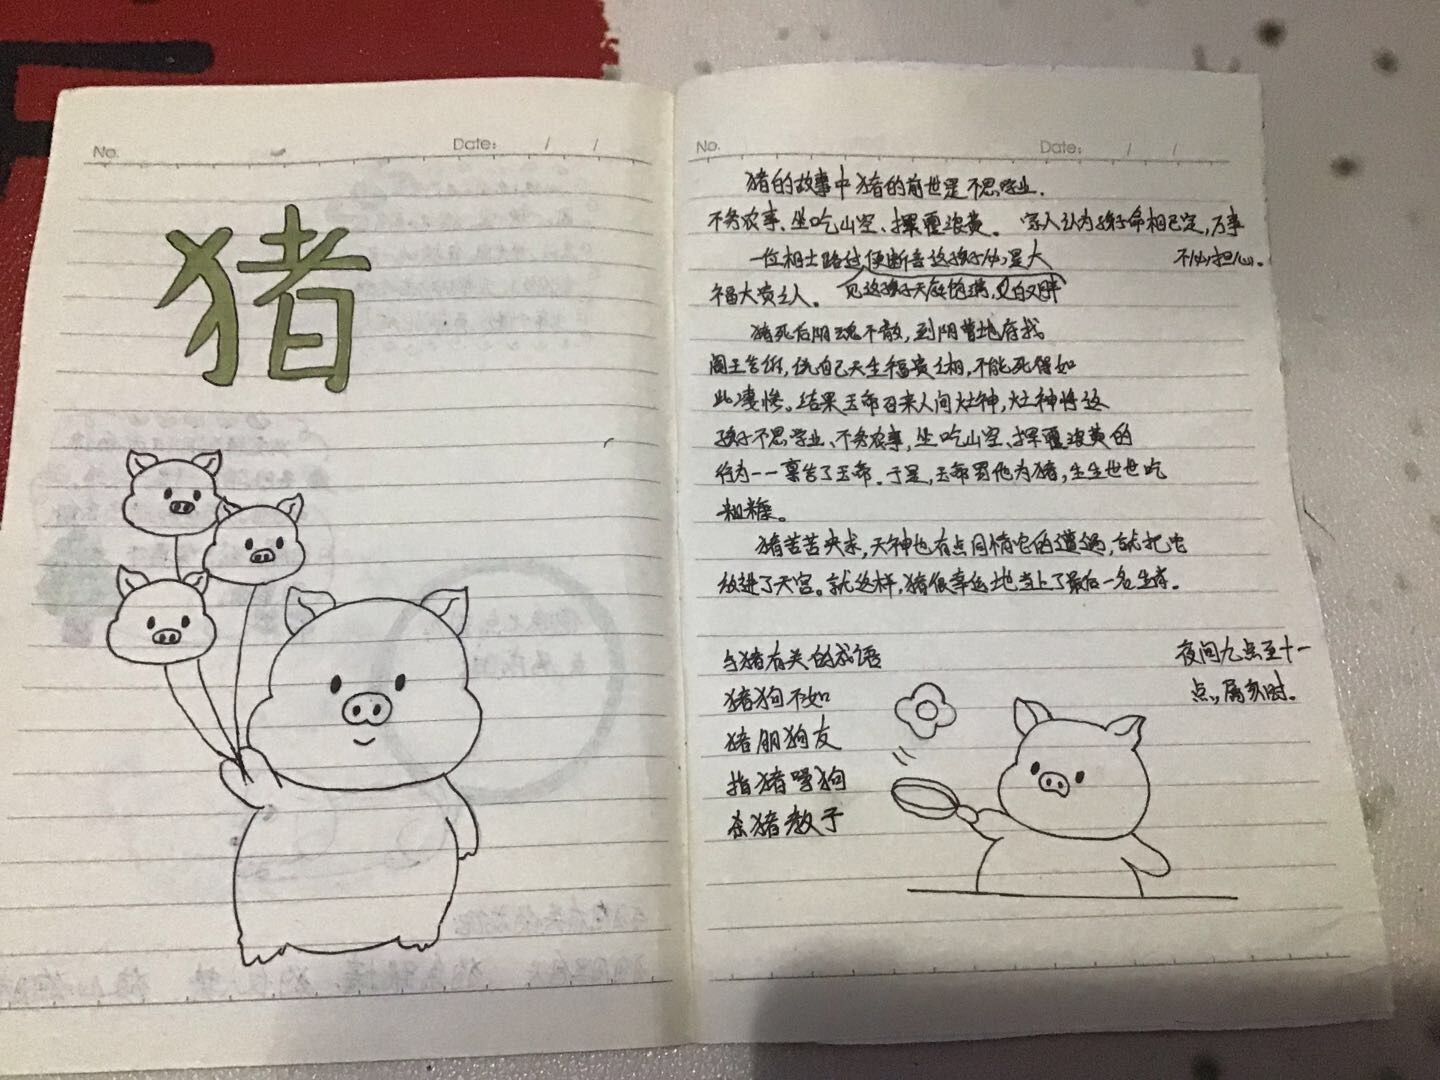 No.
Date: / /
猪
No.
Date: / /
猪的故事中猪的前世是不思学业.
不务农事、坐吃山空、挥霍浪费。 家人认为孩子命相已定,万事
不必担心。
一位相士路过便断言这孩子必是大
福大贵之人。 见这孩子天庭饱满,又白又胖
猪死后阴魂不散,到阴曹地府找
阎王告状,说自己天生福贵之相,不能死得如
此凄惨。结果玉帝召来人间灶神,灶神将这
孩子不思学业、不务农事,坐吃山空、挥霍浪费的
行为一一禀告了玉帝.于是,玉帝罚他为猪,生生世世吃
粗糠。
猪苦苦央求,天神也有点同情它的遭遇,就把它
放进了天宫。就这样,猪很幸运地当上了最后一名生肖.
与猪有关的成语
夜间九点至十一
点,属亥时.
猪狗不如
猪朋狗友
指猪骂狗
杀猪教子